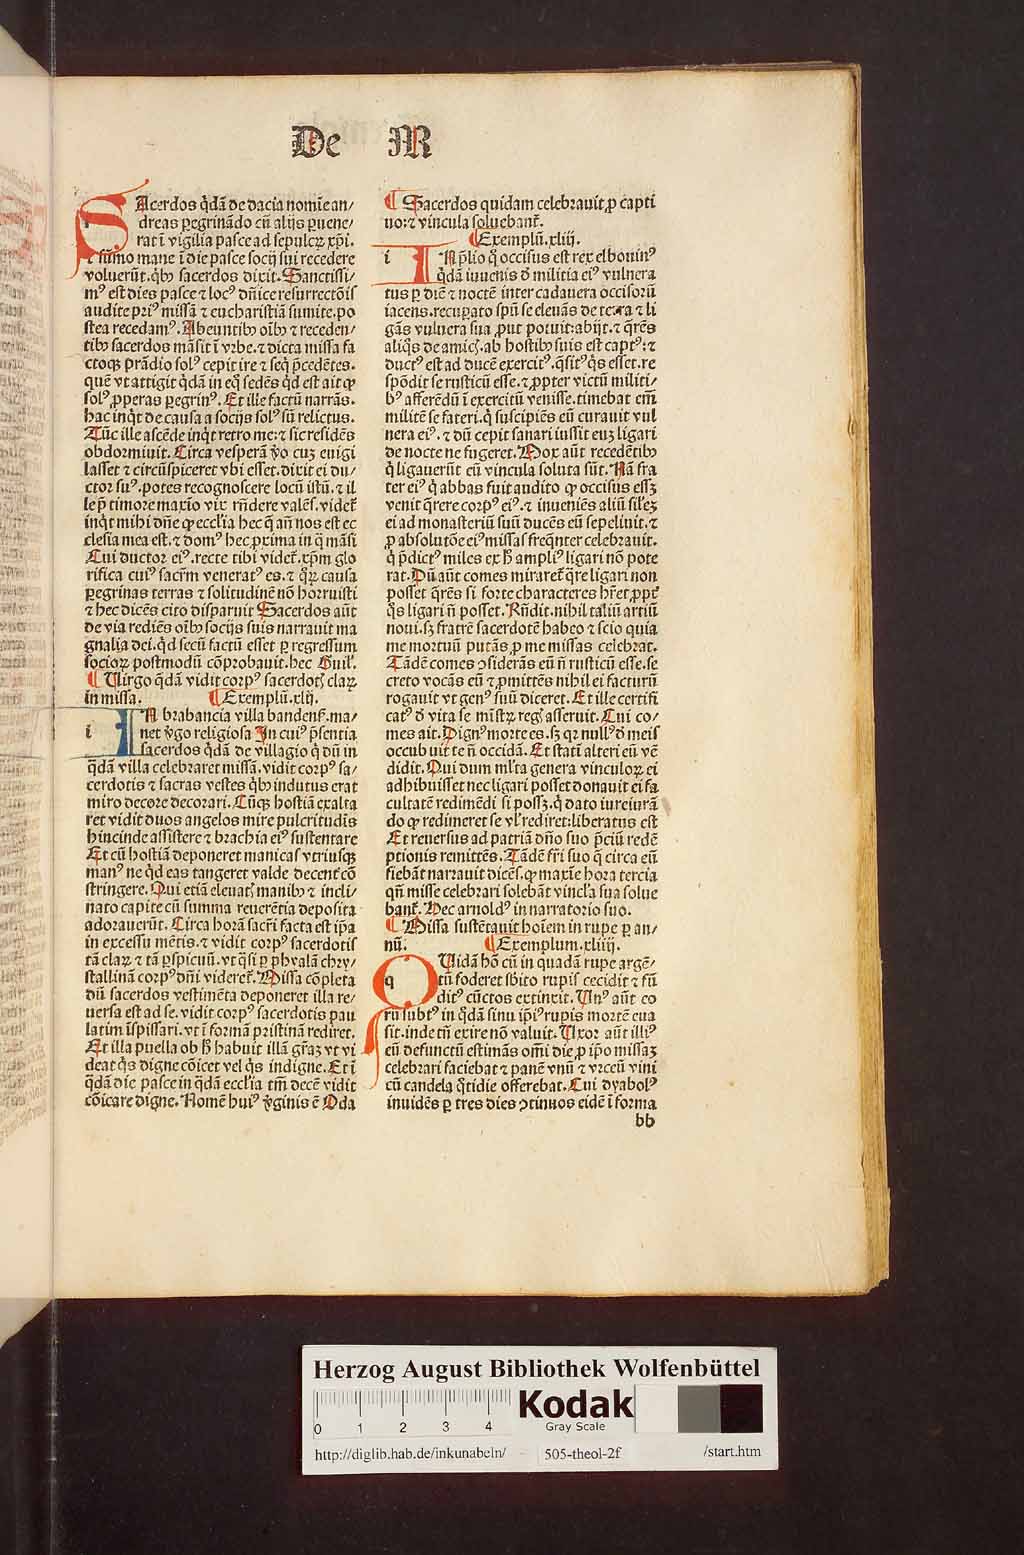 De M
SAcerdos q̄dā de dacia nomīe an/
dreas ꝑegrinādo cū alijs ꝑuene/
rat ī vigilia pasce ad sepulcꝝ xp̄i.
⁊ sūmo mane ī die pasce socij sui recedere
voluerūt. qͥbꝰ sacerdos dixit. Sanctissi/
mꝰ est dies pasce ⁊ locꝰ dn̄ice resurrectōis
audite priꝰ missā ⁊ eucharistiā sumite. po
stea recedamꝰ. Abeuntibꝰ oībꝰ ⁊ receden/
tibꝰ sacerdos māsit ī vrbe. ⁊ dicta missa fa
ctoqꝫ prādio solꝰ cepit ire ⁊ seqͥ p̄cedētes.
quē vt attigit q̄dā in eqͦ sedēs qͥd est ait ꝙ
solꝰ ꝓperas ꝑegrinꝰ. Et ille factū narrās.
hac inqͥt de causa a socijs solꝰ sū relictus.
Tūc ille ascēde inqͥt retro me: ⁊ sic residēs
obdormiuit. Circa vesperā v̄o cuꝫ euigi
lasset ⁊ circūspiceret vbi esset. dixit ei du/
ctor suꝰ. potes recognoscere locū istū. ⁊ il
le p̄ timore maxīo vix rn̄dere valēs. videt̄
inqͥt mihi dn̄e ꝙ eccl̄ia hec q̄ an̄ nos est ec
clesia mea est. ⁊ domꝰ hec ꝓxima in q̄ māsi
Cui ductor eiꝰ. recte tibi videt̄. xp̄m glo
rifica cuiꝰ sacr̄m veneratꝰ es. ⁊ qͣꝝ causa
ꝑegrinas terras ⁊ solitudinē nō horruisti
⁊ hec dicēs cito disparuit Sacerdos aūt
de via rediēs oībꝰ socijs suis narrauit ma
gnalia dei. qͥd secū factū esset ꝑ regressum
socioꝝ postmodū cōprobauit. hec Guil̄.
¶ Uirgo q̄dā vidit corpꝰ sacerdotꝭ claꝝ
in missa. ¶ Exemplū. xlij.
i IN brabancia villa bandens̄. ma/
net v̄go religiosa In cuiꝰ p̄sentia
sacerdos q̄dā de villagio q̄ dū in
q̄dā villa celebraret missā. vidit corpꝰ sa/
cerdotis ⁊ sacras vestes qͥbꝰ indutus erat
miro decore decorari. Cūqꝫ hostiā exalta
ret vidit duos angelos mire pulcritudīs
hincinde assistere ⁊ brachia eiꝰ sustentare
Et cū hostiā deponeret manicas vtriusqꝫ
manꝰ ne qͥd eas tangeret valde decent̄ cō
stringere. Qui etiā eleuatꝭ manibꝰ ⁊ incli/
nato capite cū summa reuerētia deposita
adorauerūt. Circa horā sacr̄i facta est ip̄a
in excessu mētis. ⁊ vidit corpꝰ sacerdotis
tā claꝝ ⁊ tā ꝑspicuū. vt qͣsi ꝑ phyalā chry/
stallinā corpꝰ dn̄i videret̄. Missa cōpleta
dū sacerdos vestimēta deponeret illa re/
uersa est ad se. vidit corpꝰ sacerdotis pau
latim īspissari. vt ī formā pristinā rediret.
Et illa puella ob ħ habuit illā gr̄aꝫ vt vi
deat qͥs digne cōicet vel qͥs indigne. Et ī
q̄dā die pasce in q̄dā eccl̄ia tm̄ decē vidit
cōicare digne. Nomē huiꝰ v̄ginis ē Oda
¶ Sacerdos quidam celebrauit ꝓ capti
uo: ⁊ vincula soluebant̄.
¶ Exemplū. xliij.
i IN p̄lio qͦ occisus est rex elboninꝰ
q̄dā iuuenis d̄ militia eiꝰ vulnera
tus ꝑ diē ⁊ noctē inter cadauera occisorū
iacens. recuꝑato spū se eleuās de terra ⁊ li
gās vulnera sua ꝓut potuit: abijt. ⁊ q̄rēs
aliqͦs de amicꝭ. ab hostibꝰ suis est captꝰ: ⁊
ductꝰ est ad ducē exercitꝰ. qͥsitꝰ qͥs esset. re
spōdit se rusticū esse. ⁊ ꝓpter victū militi/
bꝰ afferēdū ī exercitū venisse. timebat em̄
militē se fateri. qͥ suscipiēs eū curauit vul
nera eiꝰ. ⁊ dū cepit sanari iussit euꝫ ligari
de nocte ne fugeret. Mox aūt recedētibꝰ
qͥ ligauerūt eū vincula soluta sūt. Nā fra
ter eiꝰ qͥ abbas fuit audito ꝙ occisus essꝫ
venit q̄rere corpꝰ eiꝰ. ⁊ inueniēs aliū sil̄eꝫ
ei ad monasteriū suū ducēs eū sepeliuit. ⁊
ꝓ absolutōe eiꝰ missas freqͣnter celebrauit.
qͥ p̄dictꝰ miles ex ħ ampliꝰ ligari nō pote
rat. Dū aūt comes miraret̄ q̄re ligari non
posset q̄rēs si forte characteres hr̄et ꝓpt̄
qͦs ligari n̄ posset. Rn̄dit. nihil taliū artiū
noui. sꝫ fratrē sacerdotē habeo ⁊ scio quia
me mortuū putās. ꝓ me missas celebrat.
Tādē comes ↄsiderās eū n̄ rusticū esse. se
creto vocās eū ⁊ ꝓmittēs nihil ei facturū
rogauit vt genꝰ suū diceret. Et ille certifi
catꝰ d̄ vita se mīstꝝ regꝭ asseruit. Cui co/
mes ait. Dignꝰ morte es. sꝫ qꝛ nullꝰ d̄ meis
occubuit te n̄ occidā. Et statī alteri eū vē
didit. Qui dum ml̄ta genera vinculoꝝ ei
adhibuisset nec ligari posset donauit ei fa
cultatē redimēdi si possꝫ. qͥ dato iureiurā
do ꝙ redimeret se vl̓ rediret: liberatus est
Et reuersus ad patriā dn̄o suo p̄ciū redē
ptionis remittēs. Tādē fr̄i suo q̄ circa eū
fiebāt narrauit dicēs. ꝙ maxīe hora tercia
qn̄ misse celebrari solebāt vincl̓a sua solue
bant̄. Hec arnoldꝰ in narratorio suo.
¶ Missa sustētauit hoīem in rupe ꝑ an/
nū. ¶ Exemplum. xliiij.
q QUidā hō cū in quadā rupe argē/
tū foderet sbito rupis cecidit ⁊ fū
ditꝰ cūctos extinxit. Unꝰ aūt eo
rū subtꝰ in q̄dā sinu ip̄iꝰ rupis mortē eua
sit. inde tn̄ exire nō valuit. Uxor aūt illiꝰ
eū defunctū estimās om̄i die ꝓ ip̄o missaꝫ
celebrari faciebat ⁊ panē vnū ⁊ vrceū vini
cū candela qͦtidie offerebat. Cui dyabolꝰ
inuidēs ꝑ tres dies ↄtinuos eidē ī forma
bb
Herzog August Bibliothek Wolfenbüttel
0 1 2 3 4
Kodak
Gray Scale
http://diglib.hab.de/inkunabeln/ - 505-theol-2f /start.htm